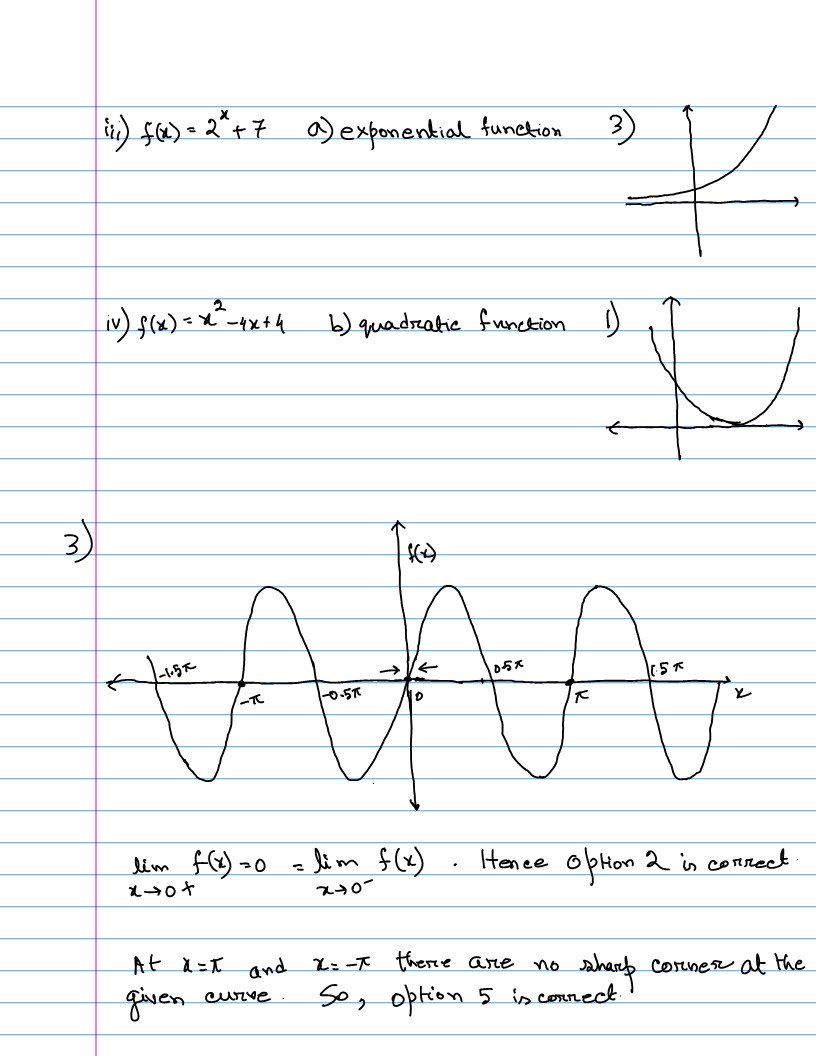 iii) f(x) = 2^x + 7 a) exponential function 3)
iv) f(x) = x^2 - 4x + 4 b) quadratic function 1)
3)
f(x)
-1.5π 0.5π 1.5π
-π -0.5π 0 π x
lim f(x) = 0 = lim f(x) . Hence option 2 is correct.
x→0+ x→0-
At x = π and x = -π there are no sharp corner at the
given curve. So, option 5 is correct.